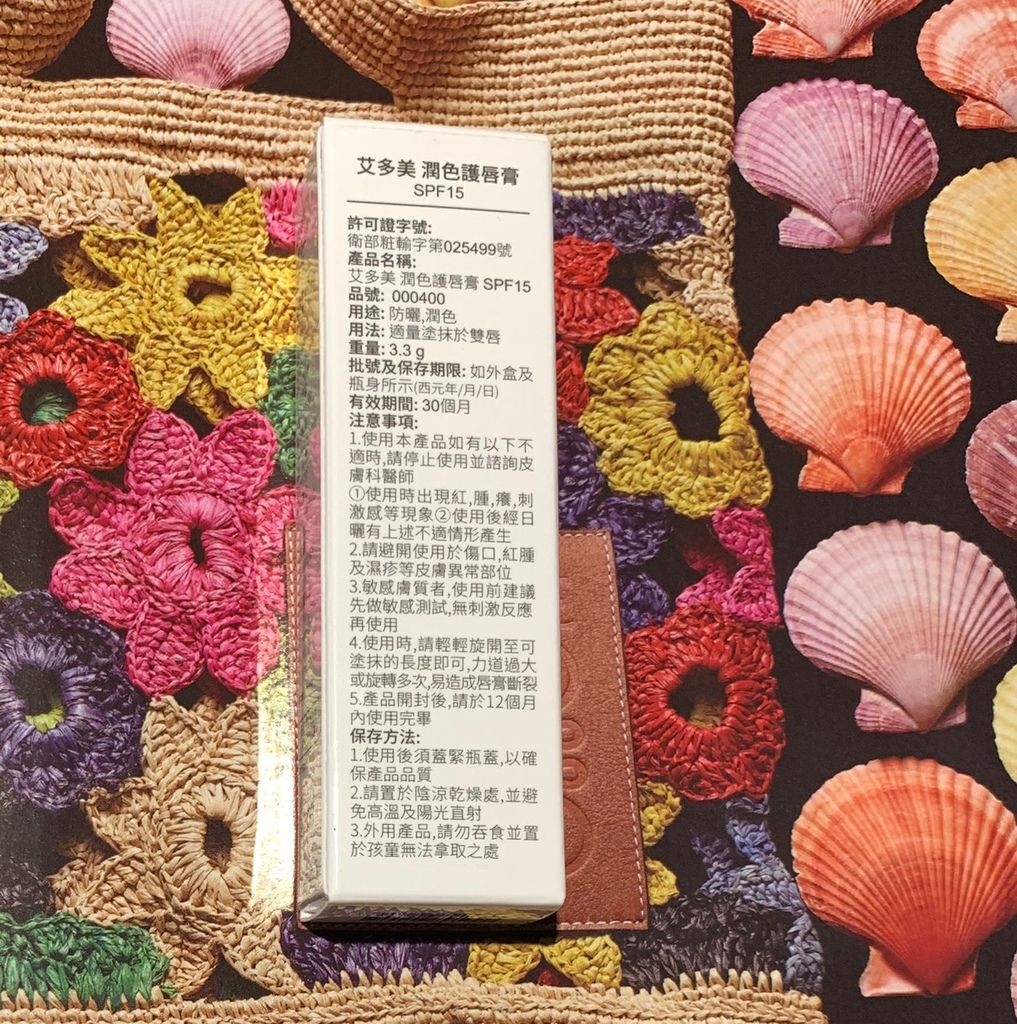 艾多美 潤色護唇膏
SPF15
許可證字號:
衛部粧輸字第025499號
產品名稱:
艾多美 潤色護唇膏 SPF15
品號: 000400
用途: 防曬,潤色
用法: 適量塗抹於雙唇
重量: 3.3 g
批號及保存期限: 如外盒及
瓶身所示(西元年/月/日)
有效期間: 30個月
注意事項:
1.使用本產品如有以下不
適時,請停止使用並諮詢皮
膚科醫師
①使用時出現紅,腫,癢,刺
激感等現象②使用後經日
曬有上述不適情形產生
2.請避開使用於傷口,紅腫
及濕疹等皮膚異常部位
3.敏感膚質者,使用前建議
先做敏感測試,無刺激反應
再使用
4.使用時,請輕輕旋開至可
塗抹的長度即可,力道過大
或旋轉多次,易造成唇膏斷裂
5.產品開封後,請於12個月
內使用完畢
保存方法:
1.使用後須蓋緊瓶蓋,以確
保產品品質
2.請置於陰涼乾燥處,並避
免高溫及陽光直射
3.外用產品,請勿吞食並置
於孩童無法拿取之處